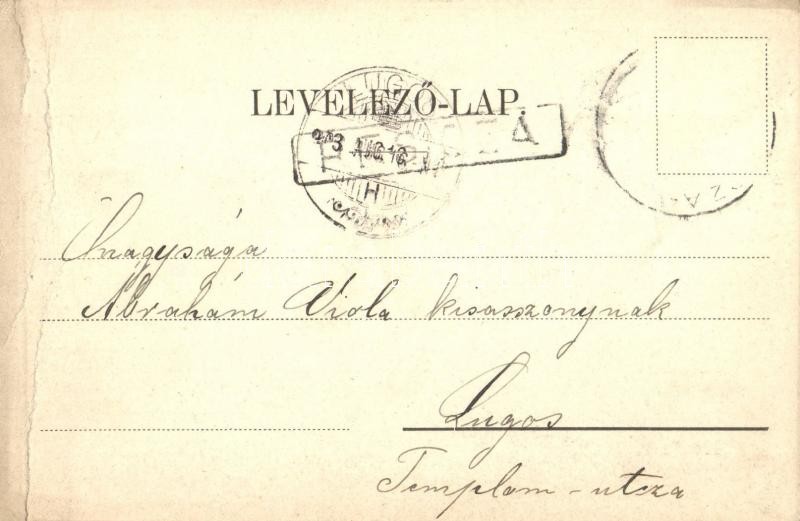 LEVELEZŐ-LAP.
LUGOS
913 AUG. 16
H
Őnagysága
Ábrahám Viola kisasszonynak
Lugos
Templom-utcza